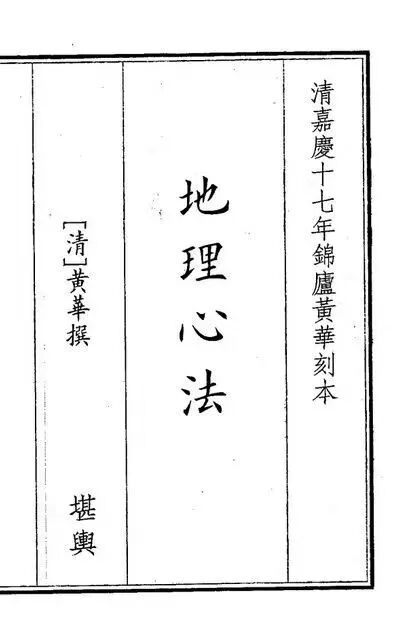 清嘉慶十七年錦廬黃華刻本
地理心法
[清]黃華撰
堪輿